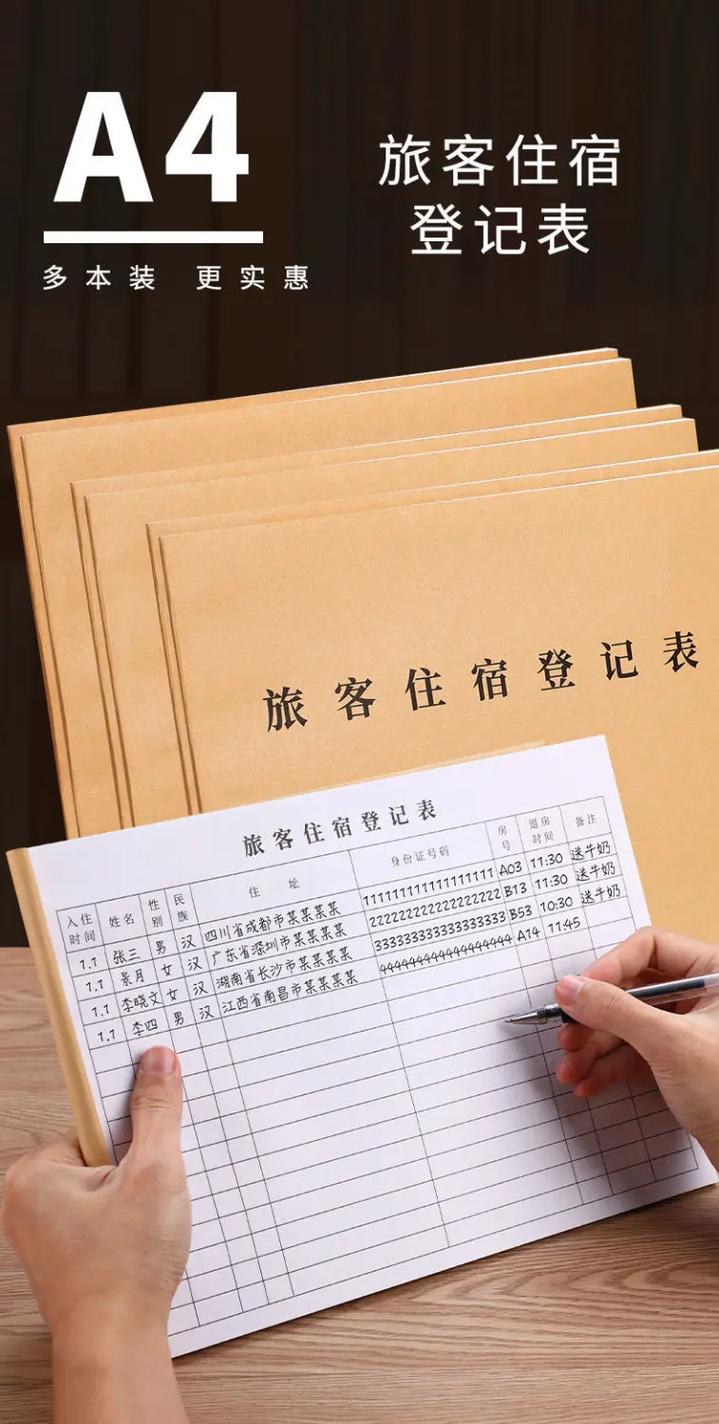 A4
多本装 更实惠
旅客住宿
登记表
旅客住宿登记表
旅客住宿登记表
入住时间 姓名 性别 民族 住址 身份证号码 房号 退房时间 备注
1.1 张三 男 汉 四川省成都市某某某某 111111111111111111 A03 11:30 送牛奶
1.1 景月 女 汉 广东省深圳市某某某某 222222222222222222 B13 11:30 送牛奶
1.1 李晓文 女 汉 湖南省长沙市某某某某 333333333333333333 B53 10:30 送牛奶
1.1 李四 男 汉 江西省南昌市某某某某 444444444444444444 A14 11:45